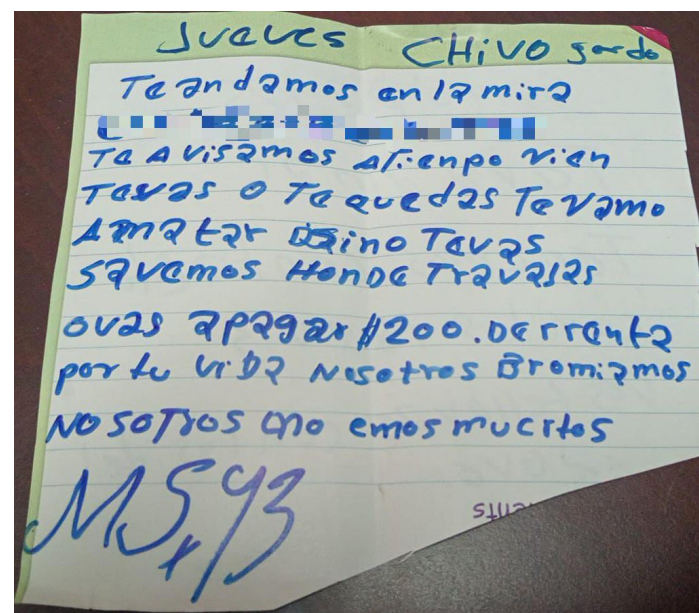 Jueves CHivo gordo
Te andamos en la mira
Te Avisamos Atienpo vien
Tevas o Te quedas Te vamo
Amatar sino Tevas
savemos Honde Travajas
ovas apagar $200. De rrenta
por tu viDa Nosotros Bromiamos
Nosotros no emos muertos
MSx93